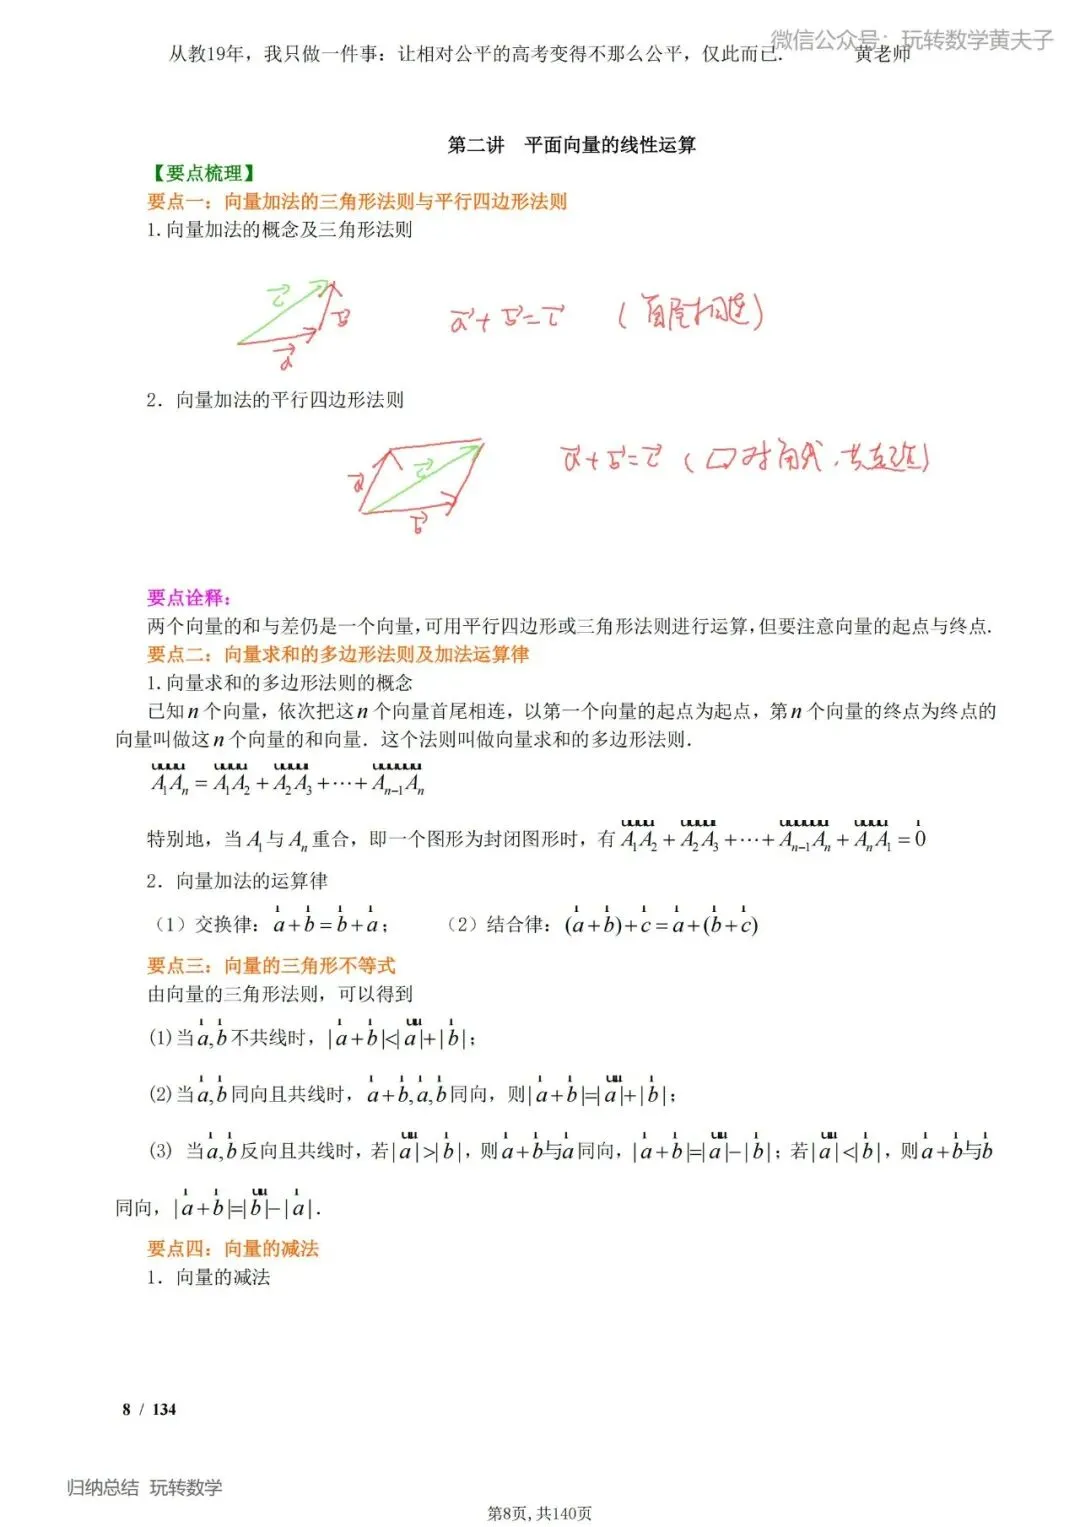 微信公众号：玩转数学黄夫子
从教19年，我只做一件事：让相对公平的高考变得不那么公平，仅此而已. 黄老师
第二讲 平面向量的线性运算
【要点梳理】
要点一：向量加法的三角形法则与平行四边形法则
1.向量加法的概念及三角形法则
c⃗
b⃗
a⃗
a⃗+b⃗=c⃗ (首尾相连)
2. 向量加法的平行四边形法则
a⃗
c⃗
b⃗
a⃗+b⃗=c⃗ (▱对角线,共起点)
要点诠释：
两个向量的和与差仍是一个向量,可用平行四边形或三角形法则进行运算,但要注意向量的起点与终点.
要点二：向量求和的多边形法则及加法运算律
1.向量求和的多边形法则的概念
已知n个向量，依次把这n个向量首尾相连，以第一个向量的起点为起点，第n个向量的终点为终点的
向量叫做这n个向量的和向量. 这个法则叫做向量求和的多边形法则.
A₁Aₙ = A₁A₂ + A₂A₃ +⋯+ Aₙ₋₁Aₙ
特别地，当A₁与Aₙ重合，即一个图形为封闭图形时，有A₁A₂ + A₂A₃ +⋯+ Aₙ₋₁Aₙ + AₙA₁ = 0
2. 向量加法的运算律
（1）交换律：a+b=b+a； （2）结合律：(a+b)+c=a+(b+c)
要点三：向量的三角形不等式
由向量的三角形法则，可以得到
(1)当a,b不共线时，|a+b|<|a|+|b|；
(2)当a,b同向且共线时，a+b,a,b同向，则|a+b|=|a|+|b|；
(3) 当a,b反向且共线时，若|a|>|b|，则a+b与a同向，|a+b|=|a|-|b|；若|a|<|b|，则a+b与b
同向，|a+b|=|b|-|a|.
要点四：向量的减法
1. 向量的减法
8 / 134
归纳总结 玩转数学
第8页,共140页